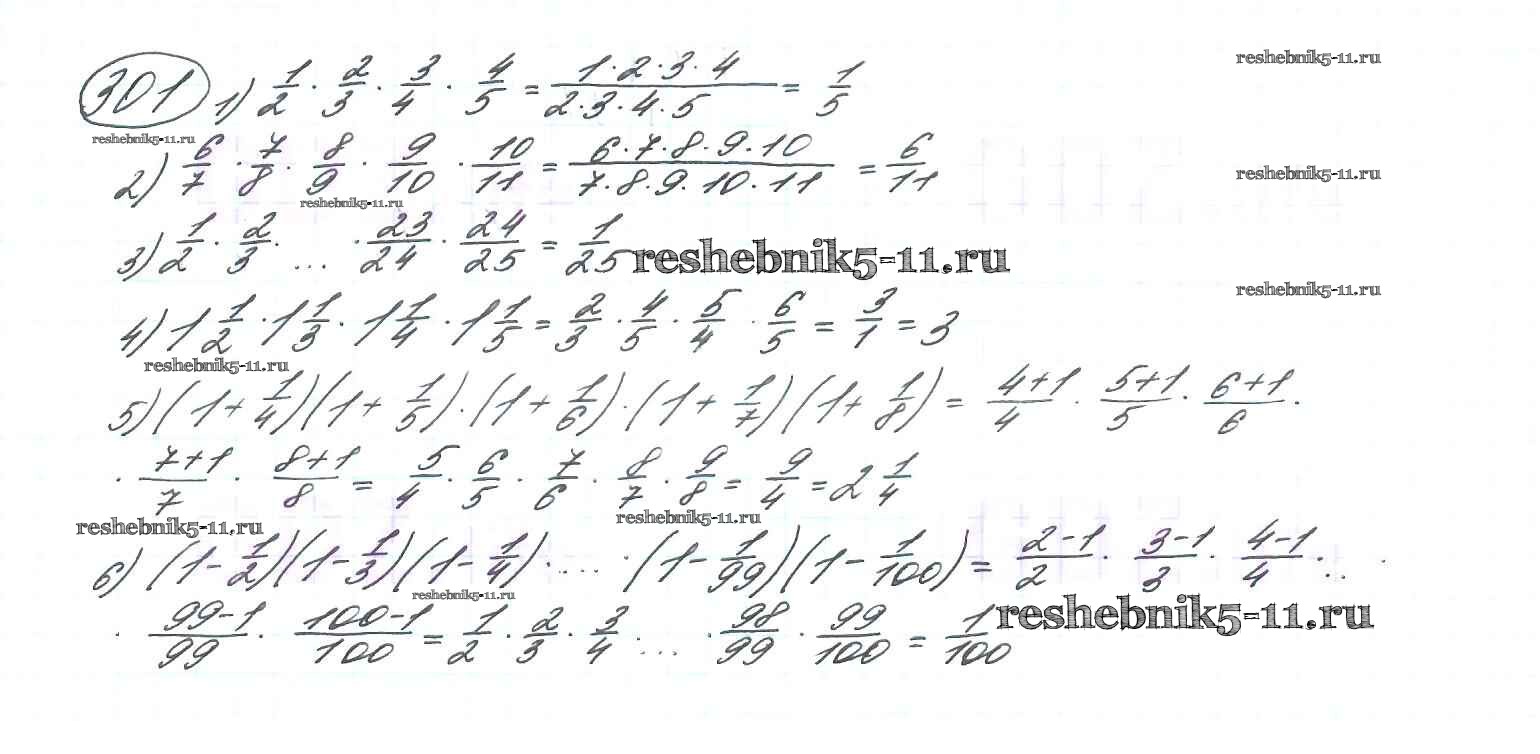 301 1) 1/2 · 2/3 · 3/4 · 4/5 = 1·2·3·4/2·3·4·5 = 1/5
reshebnik5-11.ru
reshebnik5-11.ru
2) 6/7 · 7/8 · 8/9 · 9/10 · 10/11 = 6·7·8·9·10/7·8·9·10·11 = 6/11
reshebnik5-11.ru
reshebnik5-11.ru
3) 1/2 · 2/3 · ... · 23/24 · 24/25 = 1/25
reshebnik5-11.ru
reshebnik5-11.ru
4) 1 1/2 · 1 1/3 · 1 1/4 · 1 1/5 = 2/3 · 4/5 · 5/4 · 6/5 = 3/1 = 3
reshebnik5-11.ru
5) (1 + 1/4)(1 + 1/5) · (1 + 1/6) · (1 + 1/7)(1 + 1/8) = 4+1/4 · 5+1/5 · 6+1/6 ·
· 7+1/7 · 8+1/8 = 5/4 · 6/5 · 7/6 · 8/7 · 9/8 = 9/4 = 2 1/4
reshebnik5-11.ru
reshebnik5-11.ru
6) (1 - 1/2)(1 - 1/3)(1 - 1/4) · ... · (1 - 1/99)(1 - 1/100) = 2-1/2 · 3-1/3 · 4-1/4 · ...
reshebnik5-11.ru
· 99-1/99 · 100-1/100 = 1/2 · 2/3 · 3/4 ... · 98/99 · 99/100 = 1/100
reshebnik5-11.ru